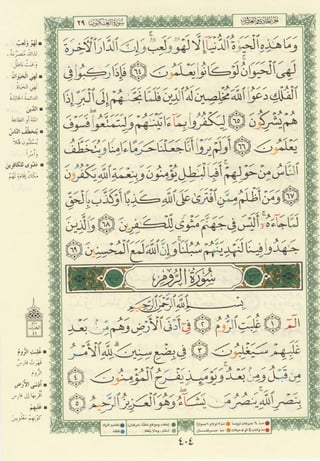 سورة العنكبوت ٢٩
وَمَا هَٰذِهِ الْحَيَوٰةُ الدُّنْيَا إِلَّا لَهْوٌ وَلَعِبٌ وَإِنَّ الدَّارَ الْآخِرَةَ
لَهِيَ الْحَيَوَانُ لَوْ كَانُوا يَعْلَمُونَ ٦٤ فَإِذَا رَكِبُوا فِي
الْفُلْكِ دَعَوُا اللَّهَ مُخْلِصِينَ لَهُ الدِّينَ فَلَمَّا نَجَّىٰهُمْ إِلَى الْبَرِّ إِذَا
هُمْ يُشْرِكُونَ ٦٥ لِيَكْفُرُوا بِمَا ءَاتَيْنَٰهُمْ وَلِيَتَمَتَّعُوا فَسَوْفَ
يَعْلَمُونَ ٦٦ أَوَلَمْ يَرَوْا أَنَّا جَعَلْنَا حَرَمًا ءَامِنًا وَيُتَخَطَّفُ
النَّاسُ مِنْ حَوْلِهِمْ أَفَبِالْبَٰطِلِ يُؤْمِنُونَ وَبِنِعْمَةِ اللَّهِ يَكْفُرُونَ
٦٧ وَمَنْ أَظْلَمُ مِمَّنِ افْتَرَىٰ عَلَى اللَّهِ كَذِبًا أَوْ كَذَّبَ بِالْحَقِّ
لَمَّا جَاءَهُ أَلَيْسَ فِي جَهَنَّمَ مَثْوًى لِلْكَٰفِرِينَ ٦٨ وَالَّذِينَ
جَٰهَدُوا فِينَا لَنَهْدِيَنَّهُمْ سُبُلَنَا وَإِنَّ اللَّهَ لَمَعَ الْمُحْسِنِينَ ٦٩
سُورَةُ الرُّومِ
بِسْمِ اللَّهِ الرَّحْمَٰنِ الرَّحِيمِ
الٓمٓ ١ غُلِبَتِ الرُّومُ ٢ فِي أَدْنَى الْأَرْضِ وَهُمْ مِنْ بَعْدِ
غَلَبِهِمْ سَيَغْلِبُونَ ٣ فِي بِضْعِ سِنِينَ لِلَّهِ الْأَمْرُ
مِنْ قَبْلُ وَمِنْ بَعْدُ وَيَوْمَئِذٍ يَفْرَحُ الْمُؤْمِنُونَ ٤
بِنَصْرِ اللَّهِ يَنْصُرُ مَنْ يَشَاءُ وَهُوَ الْعَزِيزُ الرَّحِيمُ ٥
٤٠٤